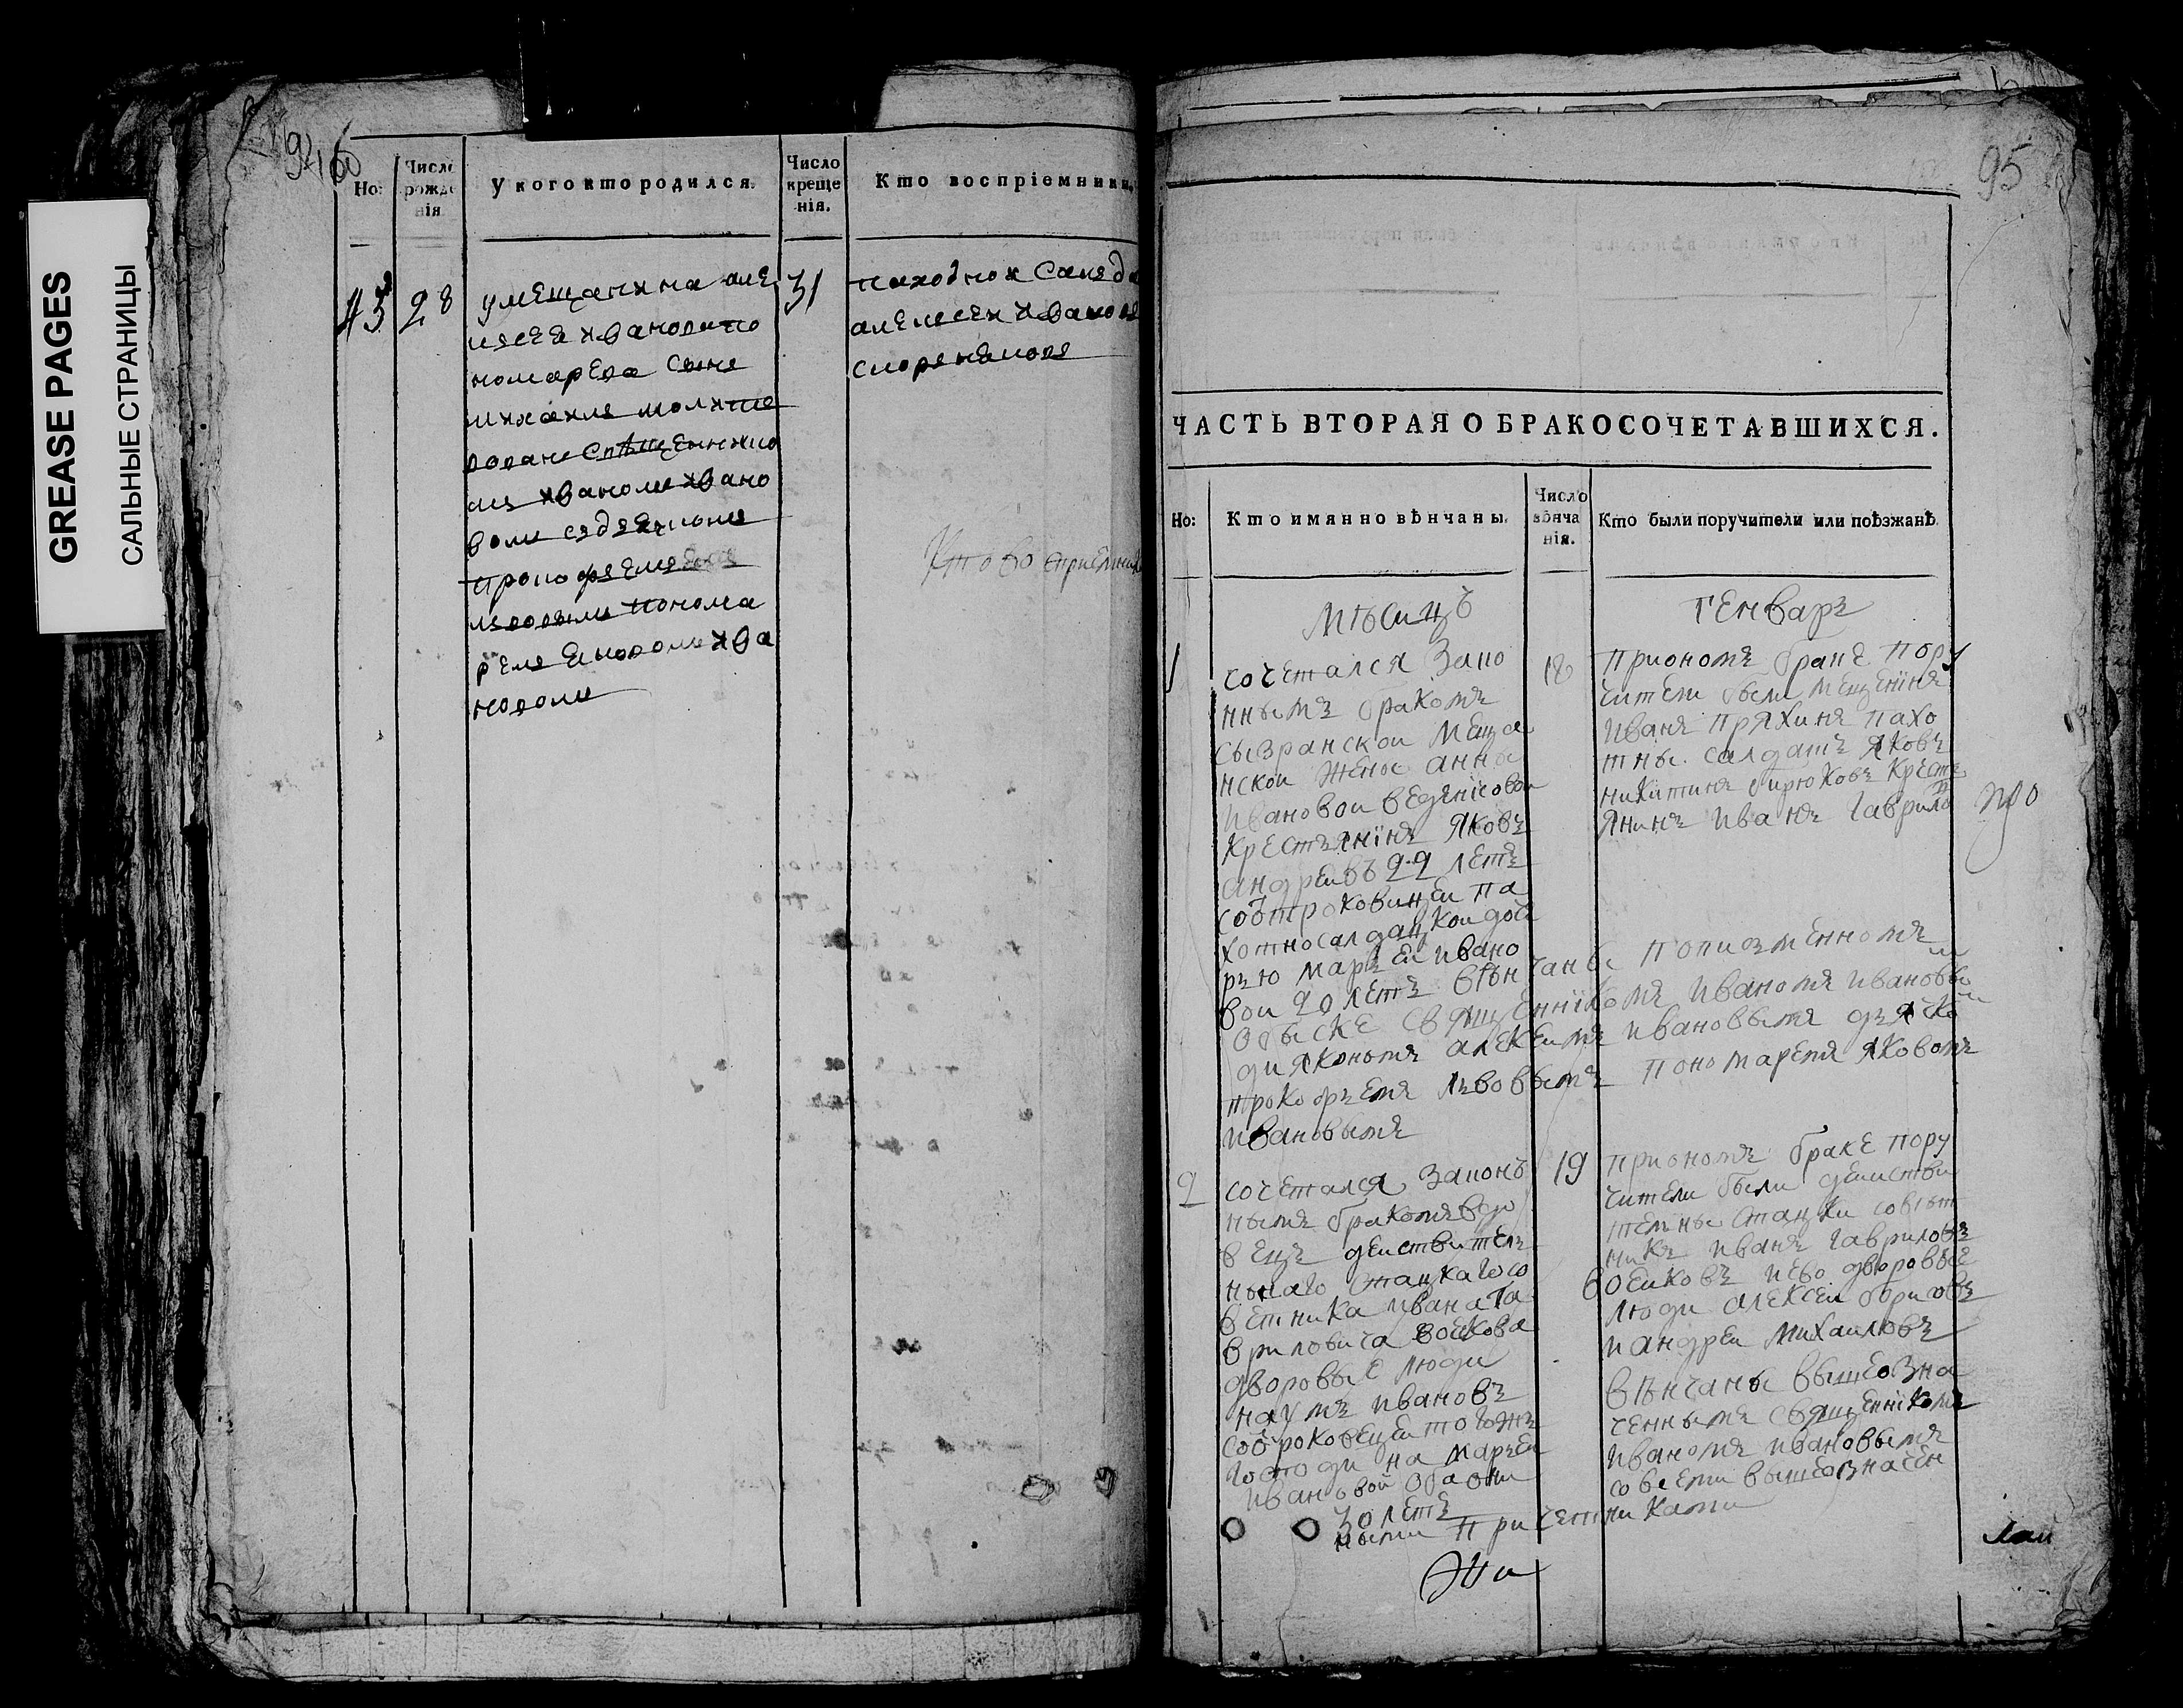 GREASE PAGES
САЛЬНЫЕ СТРАНИЦЫ
Но:
Число рожде нія
У кого кто родился.
Число креще нія.
Кто воспріемники.
43
28
умещанина але
ксея иванова по
номарева сынъ
михаилъ молитво
вопанъ священнико
мъ иваномъ ивано
вомъ
прокофьемъ
львовымъ понома
ремъ яковомъ ива
новомъ
31
пахотной салда
алексеи ивановъ
Кто воспріемники
95
ЧАСТЬ ВТОРАЯ О БРАКОСОЧЕТАВШИХСЯ.
Но:
Кто имянно вѣнчаны.
Число вѣнча нія.
Кто были поручители или поѣзжанѣ.
мѣсицъ
генваръ
1
сочетался зако
ннымъ бракомъ
сызранскои меща
нскои жены анны
ивановои
крестьянїнъ яковъ
андреивъ 22 летъ
сотроковицеи па
хотносалдацкои доч
рью марьеи ивано
вои 20 летъ вѣнчаны пописменномъ
обыске священнїкомъ иваномъ ивановы
дияконымъ алексеимъ ивановымъ дьячко
прокофьемъ львовымъ пономаремъ яковомъ
ивановымъ
18
приономъ браке пору
чители были мещенїнъ
иванъ пряхинъ пахо
тны. салдатъ яковъ
никитинъ бирюковъ крестъ
янинъ иванъ гаврило
2
сочетался законъ
нымъ бракомъ вдо
вецъ деиствителъ
нынаго стацкагосо
ветника ивана га
вриловича воекова
дворовые люди
наумъ ивановъ
сотроковецеи тогожъ
господина марьеи
ивановой оба они
30 летъ
19
приономъ браке пору
чители были деистви
телны стацки советъ
никъ иванъ гавриловъ
воеиковъ иево дворовые
люди алексеи
и андреи михаиловъ
вѣнчаны вышеозна
ченнымъ священнїкомъ
иваномъ ивановымъ
совсеми вышеозначен
ными причетниками